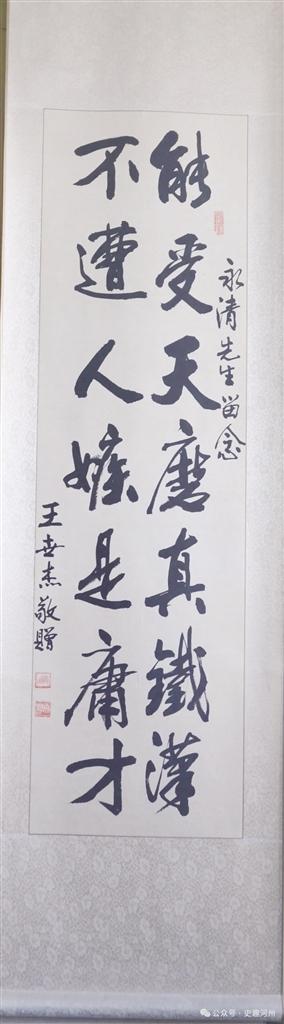 永清先生留念
能受天磨真鐵漢
不遭人嫉是庸才
王世杰敬贈
公众号·史趣河州